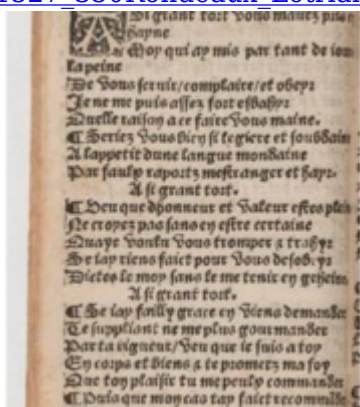 A Si grant tort vous mauez prins
hayne
A moy qui ay mis par tant de iou
La peine
De vous seruir/complaire/et obeyr
Je ne me puis assez fort esbahyr
Quelle raison a ce faire vous maine.
¶ Seriez vous bien si legiere et soubdain
A lappetit dune langue mondaine
Par faulx raportz mestranger et hayr.
A si grant tort.
¶ Veu que dhonneur et valeur estes plei
Ne croyez pas sans en estre certaine
Quaye voulu vous tromper & trahyr
Se iay riens faict pour vous desobeyr
Dictes le moy sans le me tenir en geheine
A si grant tort.
¶ Se iay failly grace en viens demander
Te suppliant ne me plus gourmander
Par ta rigueur/veu que ie suis a toy
En corps et biens & te prometz ma foy
Que ton plaisir tu me peulx commander
¶ Puis que mon cas tay faict recommãde